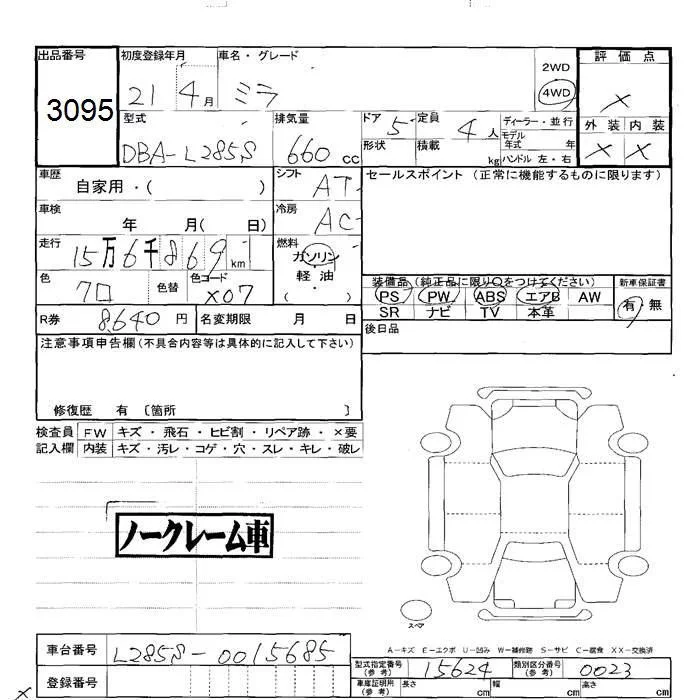 出品番号 初度登録年月 車名・グレード 評価点
3095 21 4月 ミラ 2WD 4WD ×
外装 内装
× ×
型式 排気量 ドア 定員 ディーラー・並行
DBA-L285S 660cc 5 4人 モデル年式 年
形状 積載 kg ハンドル 左・右
車歴 自家用・( ) シフト AT セールスポイント(正常に機能するものに限ります)
車検 年 月( 日) 冷房 AC
走行 15万6千869km 燃料 ガソリン
軽油
( ・ )
色 クロ 色替 色コード X07 装備品(純正品に限り○をつけてください) 新車保証書
PS PW ABS エアB AW 有・無
SR ナビ TV 本革
R券 8,640円 名変期限 月 日 後日品
注意事項申告欄(不具合内容等は具体的に記入して下さい)
修復歴 有 〔箇所 〕
検査員 FW キズ・飛石・ヒビ割・リペア跡・×要
記入欄 内装 キズ・汚レ・コゲ・穴・スレ・キレ・破レ
ノークレーム車
スペア
A-キズ E-エクボ U-凹み W-補修跡 S-サビ C-腐食 XX-交換済
車台番号 L285S-0015685 型式指定番号(参考) 15624 類別区分番号(参考) 0023
登録番号 車庫証明用(参考) 長さ cm 幅 cm 高さ cm
×